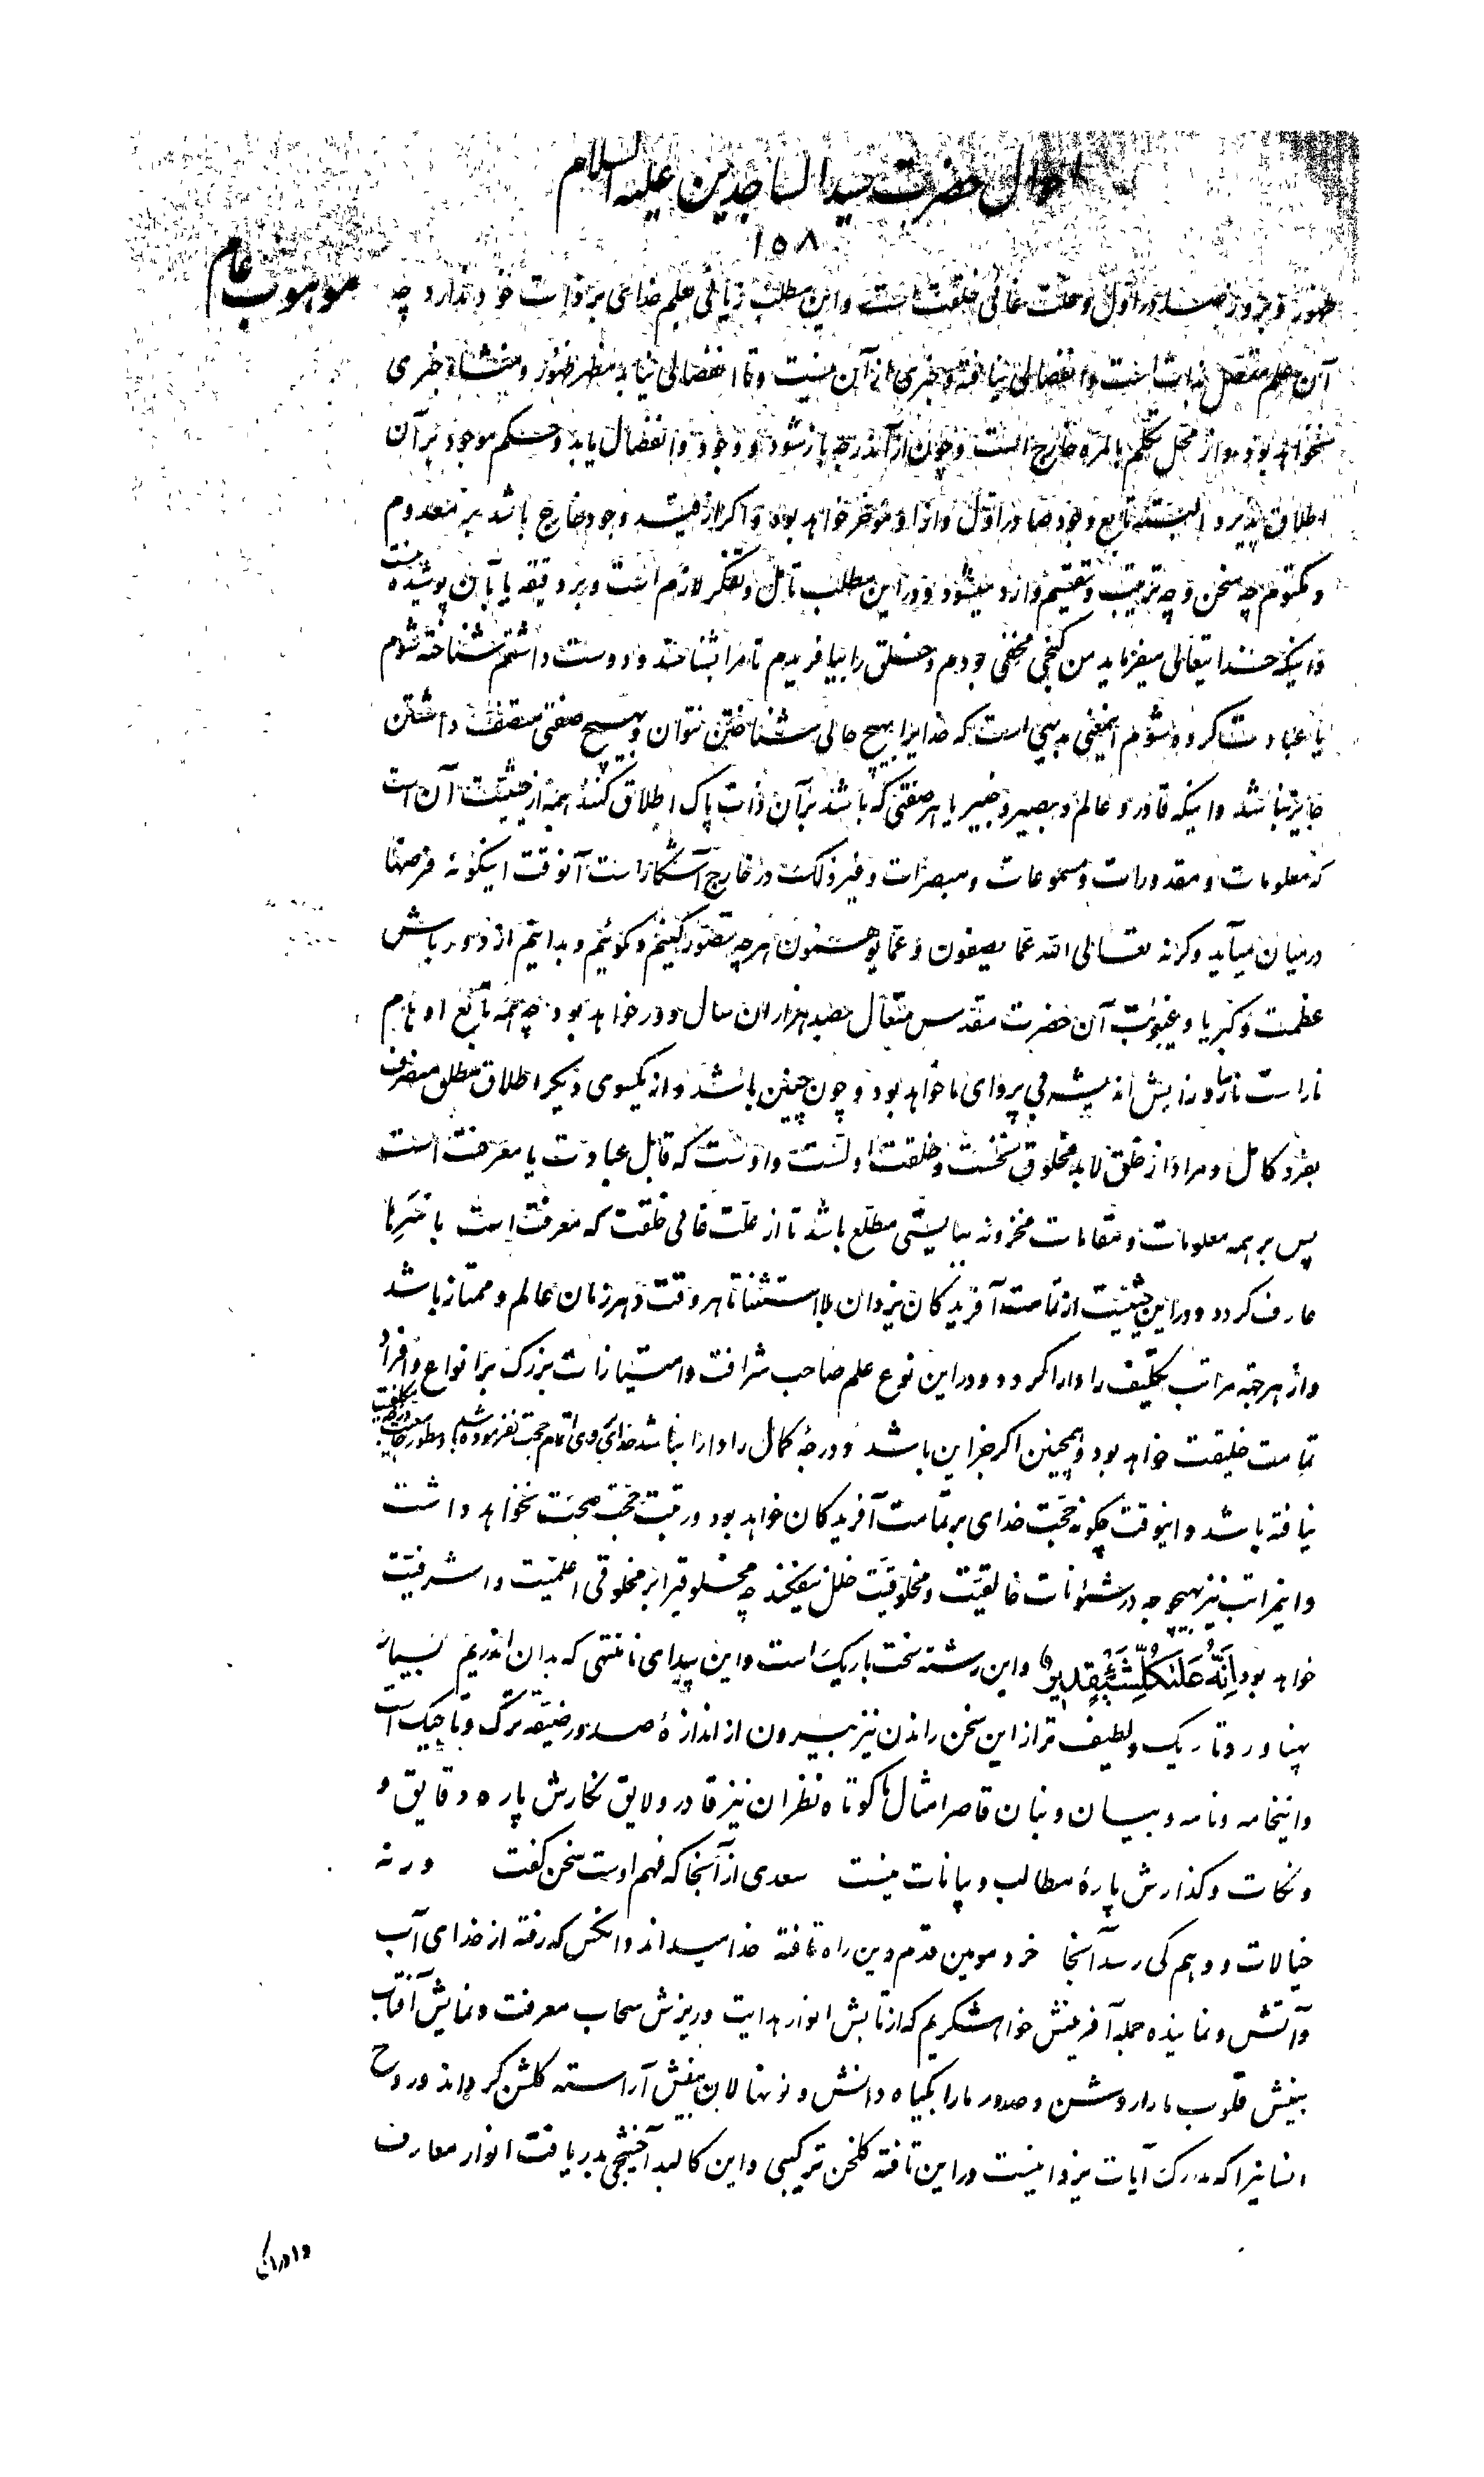 احوال حضرت سید الساجدین علیه السلام
۱۵۸
موهوب عام
ظهور و بروز صدور اول و علت غائی خلقت است و این مطلب زیانی بعلم خدای بر ذات خود ندارد چه
آن علم متصل بذات است و انفصالی نیافته و خبری از آن نیست و تا انفصالی نیابد مظهر ظهور و منشاء خبری
نخواهد بود و از محل تکلم بالمره خارج است و چون از آندرجه بازشود و وجود و انفصال یابد و حکم موجود بر آن
اطلاق پذیرد البته تابع وجود صادر اول و از او مؤخر خواهد بود و اگر از قید وجود خارج باشد بر معدوم
و مکتوم چه سخن و چه ترتیب و تقسیم وارد میشود و در این مطلب تامل و تفکر لازم است و بر دقیقه یابان پوشیده نیست
و اینکه خدایتعالی میفرماید من گنجی مخفی بودم و خلق را بیافریدم تا مرا بشناسند و دوست داشتم شناخته شوم
یا عبادت کرده شوم اینمعنی بدیهی است که خدایرا بهیچ حالی شناختن نتوان و بهیچ صفتی متصف داشتن
جایز نباشد و اینکه قادر و عالم و بصیر و خبیر یا هر صفتی که باشد بر آن ذات پاک اطلاق کنند همه از حیثیت آن است
که معلومات و مقدورات و مسموعات و مبصرات و غیر ذلک در خارج آشکار است آنوقت اینگونه فرضها
در میان میآید و گرنه تعالی الله عما یصفون و عما یوهمون هر چه تصور کنیم و گوئیم و بدانیم از دور باش
عظمت و کبریا و غیبوبت آن حضرت مقدس متعال بصد هزاران سال دور خواهد بود چه همه تابع اوهام
ما راست نه ماورای اندیشه بی پروای ما خواهد بود و چون چنین باشد و از یکسوی دیگر اطلاق مطلق منصرف
بفرد کامل و مراد از خلق لابد مخلوق نخست و خلقت اولست و اوست که قابل عبادت یا معرفت است
پس بر همه معلومات و مقامات مخزونه ببایستی مطلع باشد تا از علت غائی خلقت که معرفت است با خبر یا
عارف گردد و در این حیثیت از تمامت آفریدگان یزدان بلا استثنا تا هر وقت و هر زمان عالم و ممتاز باشد
و از هر جهته مراتب تکلیف را دارا گردد و در این نوع علم صاحب شرافت و امتیازات بزرگ بر انواع و افراد
تمامت خلیقت خواهد بود و همچنین اگر جز این باشد و درجهٔ کمال را دارا نباشد خدای بروی اتمام حجت نفرموده باشد و بطور
نیافته باشد و اینوقت چگونه حجت خدای بر تمامت آفریدگان خواهد بود و رتبت حجت نخواهد داشت
و اینمراتب نیز بهیچوجه در شئونات خالقیت و مخلوقیت خلل نیفکند چه مخلوقیرا بر مخلوقی اعلمیت و اشرفیت
خواهد بود اِنَّهُ عَلیٰ کُلِّ شَیْءٍ قَدیرٌ و این رشته سخت باریک است و این بیدای نامنتهی که بدان اندریم بسیار
پهناور و تاریک و لطیف تر از این سخن راندن نیز بیرون از اندازهٔ صدور ضیقه ترک و تاجیک است
و اینخامه و نامه و بیان و بنان قاصر امثال ما کوتاه نظران نیز قادر و لایق نگارش پاره دقایق و
و نکات و گذارش پارهٔ مطالب و بیانات نیست سعدی از آنجا که فهم اوست سخن گفت ورنه
خیالات و وهم کی رسد آنجا خرد مومین قدم وین راه تافته خدا میداند و آنکس که رفته از خدای آب
و آتش و نماینده جمله آفرینش خواهشگریم که از تابش انوار هدایت و ریزش سحاب معرفت و نمایش آفتاب
بینش قلوب ما را روشن و صدور ما را بگیاه دانش و نونهالان بینش آراسته گلشن گرداند و روح
انسانیرا که مدرک آیات یزدانیست در این تافته گلخن ترکیبی و این کالبد آخشیجی بدریافت انوار معارف